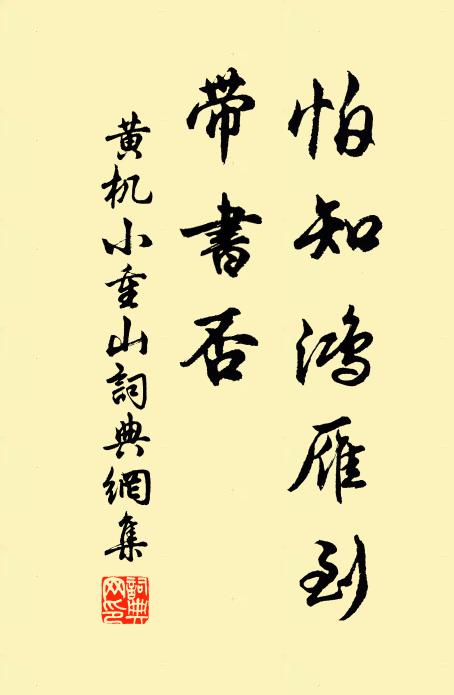 怕知鸿雁到
带書否
黄机小重山詞典網集
詞典网印